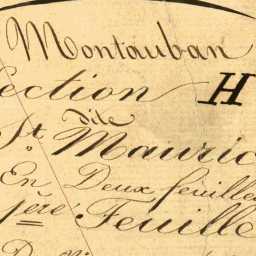 Montauban
Section H
dite
St. Mauric
En Deux feuilles
1ère Feuille